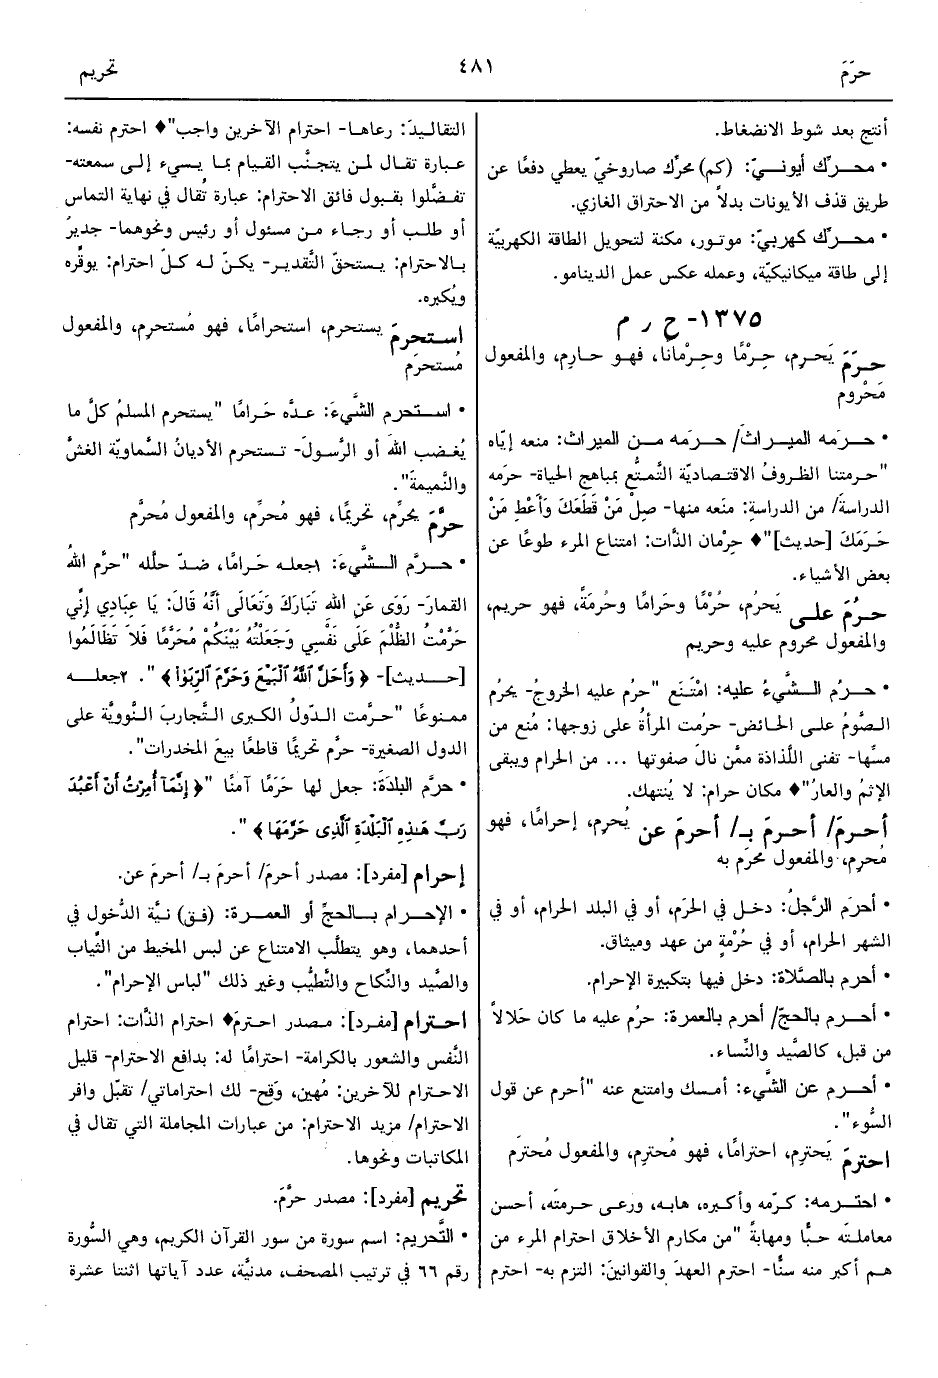 حرَمَ
٤٨١
تحريم
أنتج بعد شوط الانضغاط.
• محـرِّك أيونـيّ: (كم) محرِّك صاروخيّ يعطي دفعًا عن
طريق قذف الأيونات بدلاً من الاحتراق الغازي.
• محـرِّك كهربيّ: موتور، مكنة لتحويل الطاقة الكهربيّة
إلى طاقة ميكانيكيّة، وعمله عكس عمل الدينامو.
١٣٧٥- ح ر م
حـرَمَ يَحرِم، حِرْمًا وحِرْمانًا، فهـو حـارِم، والمفعول
مَحْروم
• حـرَمه الميـراثَ/ حـرَمه مـن الميراث: منعه إيّاه
"حـرمتنا الظروفُ الاقتـصاديّة التَّمتُّع بمباهج الحياة- حرَمه
الدراسةَ/ من الدراسةِ: منَعه منها- صِلْ مَنْ قَطَعَكَ وَأَعْطِ مَنْ
حَرَمَكَ [حديث]"♦ حِرْمان الذَّات: امتناع المرء طوعًا عن
بعض الأشياء.
حـرُمَ علـى يَحرُم، حُرْمًا وحَرامًا وحُرمَةً، فهو حريم،
والمفعول محروم عليه وحريم
• حـرُم الـشَّيءُ عليه: امْتَنَع "حرُم عليه الخروجُ- يحرُم
الـصَّومُ علـى الحـائض- حرُمت المرأةُ على زوجها: مُنع من
مسِّها- تفنى اللَّذاذة ممَّن نالَ صفوتها ... من الحرام ويبقى
الإثمُ والعارُ"♦ مكان حرام: لا يُنتهك.
أحـرمَ/ أحـرمَ بـ/ أحرمَ عن يُحرِم، إحرامًا، فهو
مُحرِم، والمفعول مُحرَم به
• أحرَم الرَّجلُ: دخـل في الحرَم، أو في البلد الحرام، أو في
الشهر الحرام، أو في حُرْمةٍ من عهد وميثاق.
• أحرم بالصَّلاة: دخل فيها بتكبيرة الإحرام.
• أحـرم بالحجّ/ أحرم بالعمرة: حرُم عليه ما كان حَلالاً
من قبل، كالصَّيد والنِّساء.
• أحـرم عن الشَّيء: أمسك وامتنع عنه "أحرم عن قول
السُّوء".
احترمَ يَحترِم، احترامًا، فهو مُحترِم، والمفعول مُحترَم
• احتـرمه: كرّمه وأكبره، هابه، ورعى حرمتَه، أحسن
معاملتَه حبًّا ومهابةً "من مكارم الأخلاق احترام المرء من
هـم أكبر منه سنًّا- احترم العهدَ والقوانينَ: التزم به- احترم
التقاليدَ: رعاها- احترام الآخرين واجب"♦ احترم نفسه:
عبارة تقال لمن يتجنَّب القيام بما يسيء إلى سمعته-
تفضَّلوا بقبول فائق الاحترام: عبارة تُقال في نهاية التماس
أو طلب أو رجاء مـن مسئول أو رئيس ونحوهما- جديرٌ
بـالاحترام: يستحقّ التَّقدير- يكنّ لـه كلّ احترام: يوقّره
ويُكبره.
استحرمَ يستحرم، استحرامًا، فهو مُستحرِم، والمفعول
مُستحرَم
• استحرم الشَّيءَ: عدَّه حَرامًا "يستحرم المسلمُ كلَّ ما
يُغضب اللهَ أو الرَّسولَ- تـستحرم الأديانُ السَّماويّة الغشَّ
والنَّميمةَ".
حرَّمَ يحرِّم، تحريمًا، فهو مُحرِّم، والمفعول مُحرَّم
• حـرَّم الـشَّيءَ: ١جعلـه حَرامًا، ضـدّ حلّله "حرَّم اللهُ
القمارَ- رَوَى عَنِ اللهِ تَبَارَكَ وَتَعَالَى أَنَّهُ قَالَ: يَا عِبَادِي إِنِّي
حَرَّمْتُ الظُّلْمَ عَلَى نَفْسِي وَجَعَلْتُهُ بَيْنَكُمْ مُحَرَّمًا فَلَا تَظَالَمُوا
[حـديث]- ﴿وَأَحَلَّ ٱللَّهُ ٱلۡبَيۡعَ وَحَرَّمَ ٱلرِّبَوٰا۟﴾". ٢جعلـه
ممنـوعًا "حـرَّمت الدّولُ الكبرى التَّجاربَ النَّوويَّة على
الدول الصغيرة- حرَّم تحريمًا قاطعًا بيعَ المخدرات".
• حرَّم البلدَةَ: جعل لها حَرَمًا آمنًا "﴿إِنَّمَآ أُمِرۡتُ أَنۡ أَعۡبُدَ
رَبَّ هَٰذِهِ ٱلۡبَلۡدَةِ ٱلَّذِى حَرَّمَهَا﴾".
إحرام [مفرد]: مصدر أحرمَ/ أحرمَ بـ/ أحرمَ عن.
• الإحـرام بـالحجّ أو العمـرة: (فق) نيَّة الدُّخول في
أحدهما، وهو يتطلَّب الامتناع عن لبس المخيط من الثِّياب
والصَّيد والنِّكاح والتَّطيُّب وغير ذلك "لباس الإحرام".
احترام [مفـرد]: مـصدر احترمَ♦ احترام الذَّات: احترام
النَّفس والشعور بالكرامة- احترامًا له: بدافع الاحترام- قليل
الاحترام للآخرين: مُهين، وَقِح- لك احتراماتي/ تقبّل وافر
الاحترام/ مزيد الاحترام: من عبارات المجاملة التي تقال في
المكاتبات ونحوها.
تحريم [مفرد]: مصدر حرَّمَ.
• التَّحريم: اسم سورة من سور القرآن الكريم، وهي السُّورة
رقم ٦٦ في ترتيب المصحف، مدنيَّة، عدد آياتها اثنتا عشرة